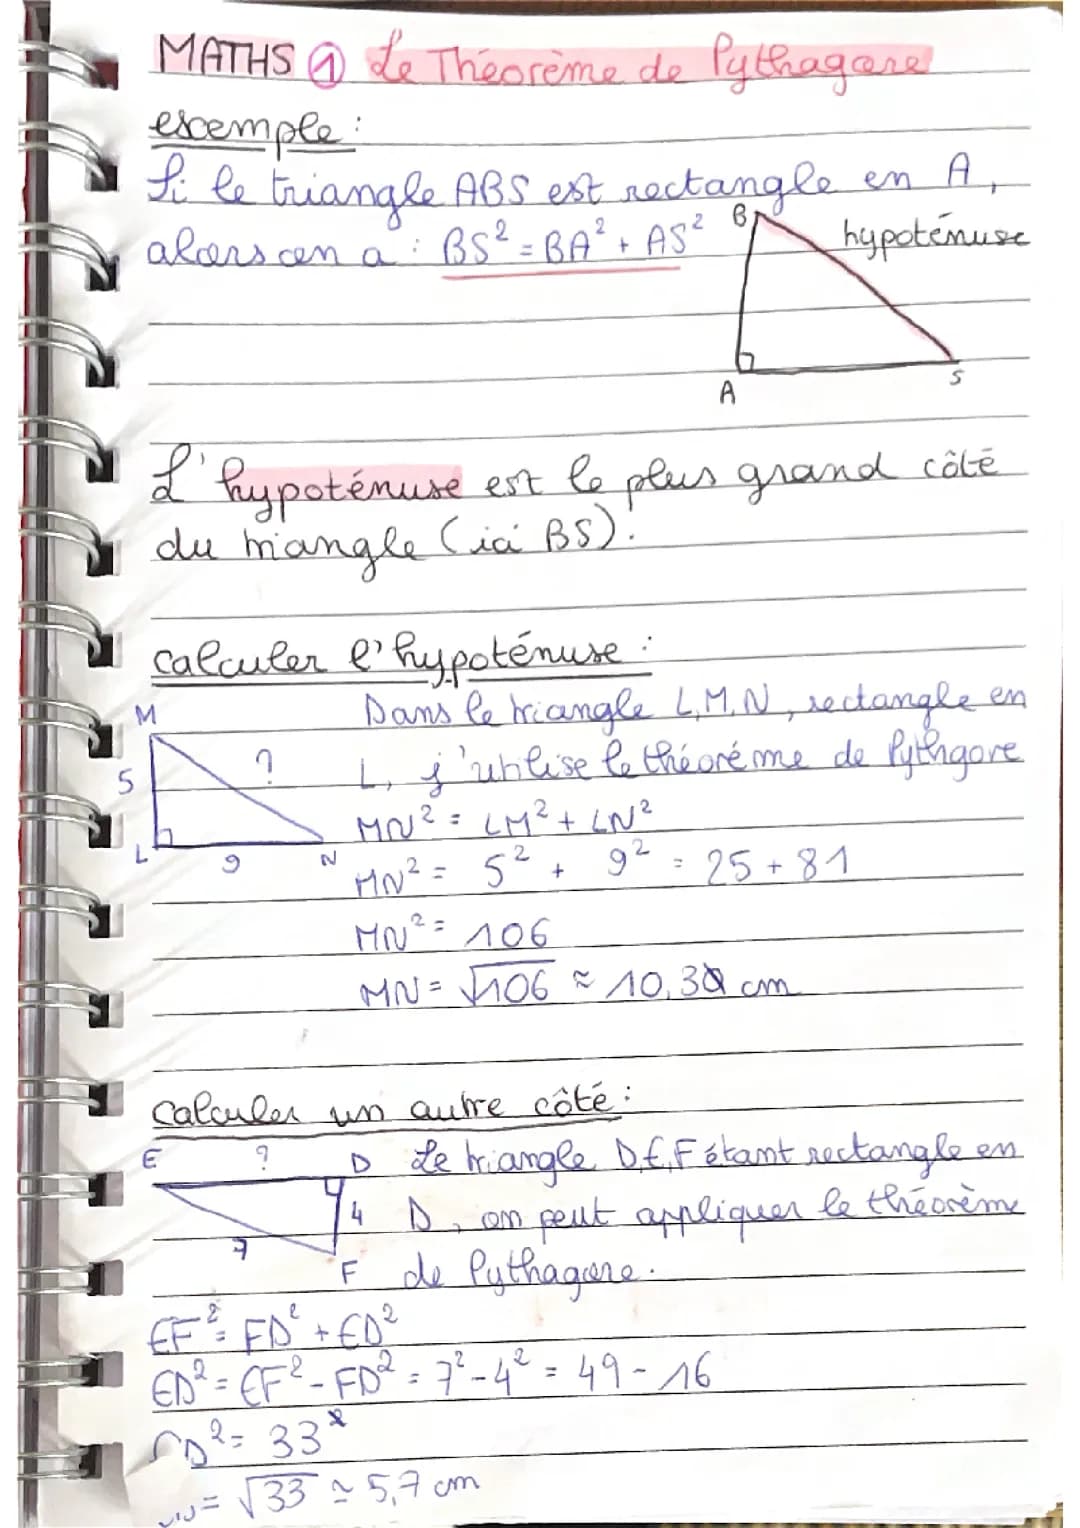 MATHS ① Le Théorème de Pythagore
exemple :
Si le triangle ABS est rectangle en A,
alors on a : BS² = BA² + AS²
B
hypoténuse
A
S
L'hypoténuse est le plus grand côté
du triangle (ici BS).
calculer l'hypoténuse :
M
Dans le triangle L,M,N, rectangle en
5
?
L, j'utilise le théoréme de Pythgore
L
9
N
MN² = LM² + LN²
MN² = 5² + 9² = 25 + 81
MN² = 106
MN = √106 ≈ 10,3 cm
calculer un autre côté :
E
?
D
Le triangle D,E,F étant rectangle en
4
D, on peut appliquer le théorème
7
F
de Pythagore.
EF² = FD² + ED²
ED² = EF² - FD² = 7² - 4² = 49 - 16
D² = 33
= √33 ≃ 5,7 cm